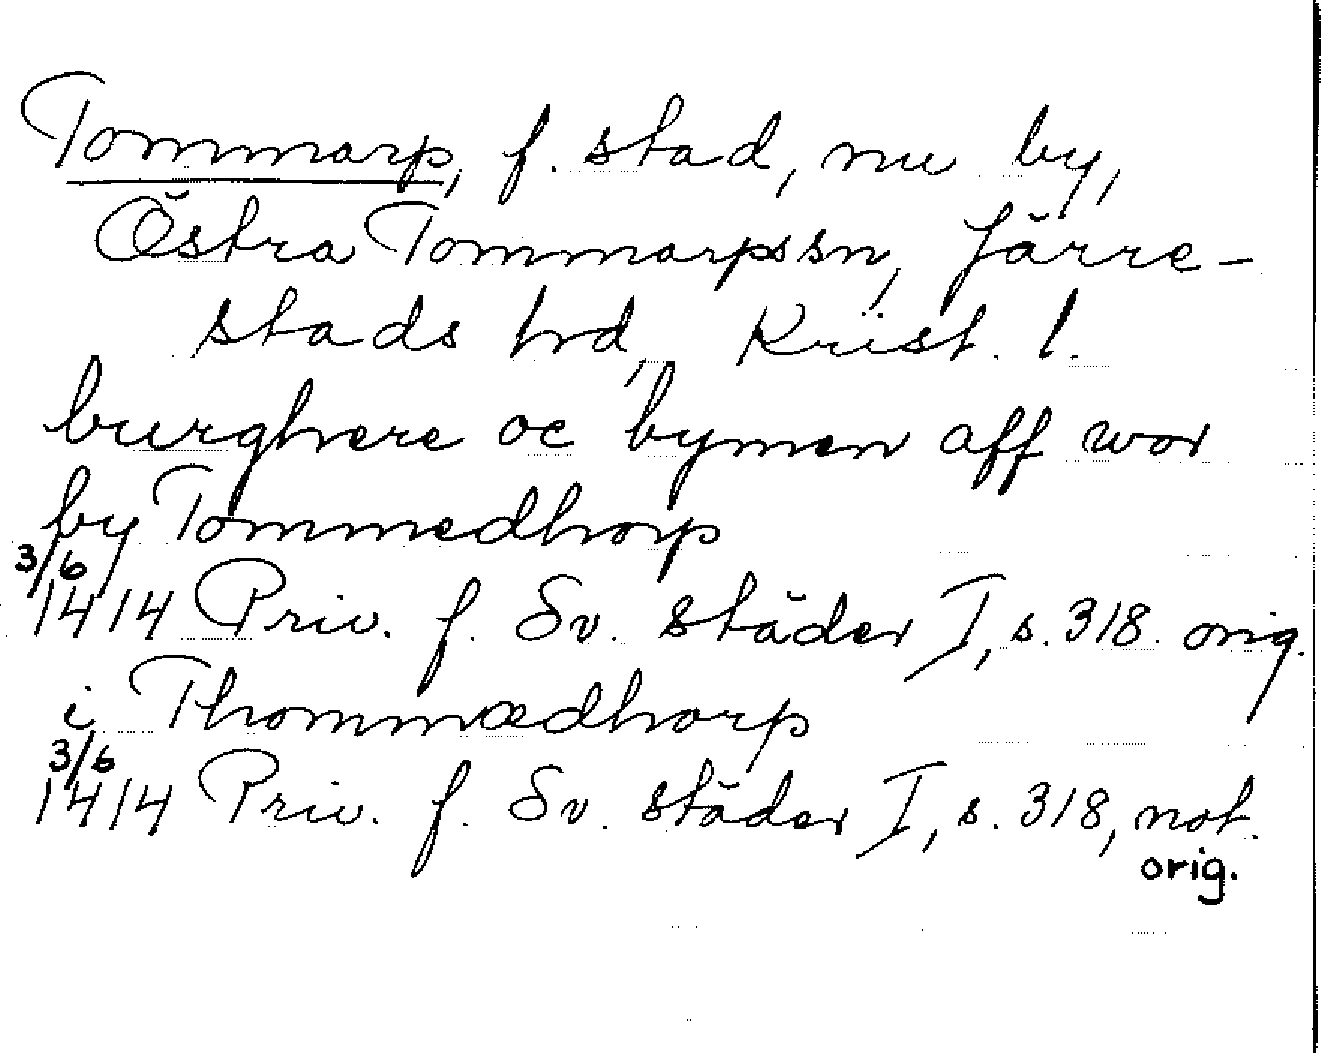 Tommarp, f. stad, nu by,
Östra Tommarpssn, Järre-
stads hd, Krist. l.
burghere oc bymen aff wor
by Tommedhorp
3/6
1414 Priv. f. Sv. städer I, s. 318. orig.
i Thommædhorp
3/6
1414 Priv. f. Sv. städer I, s. 318, not.
orig.